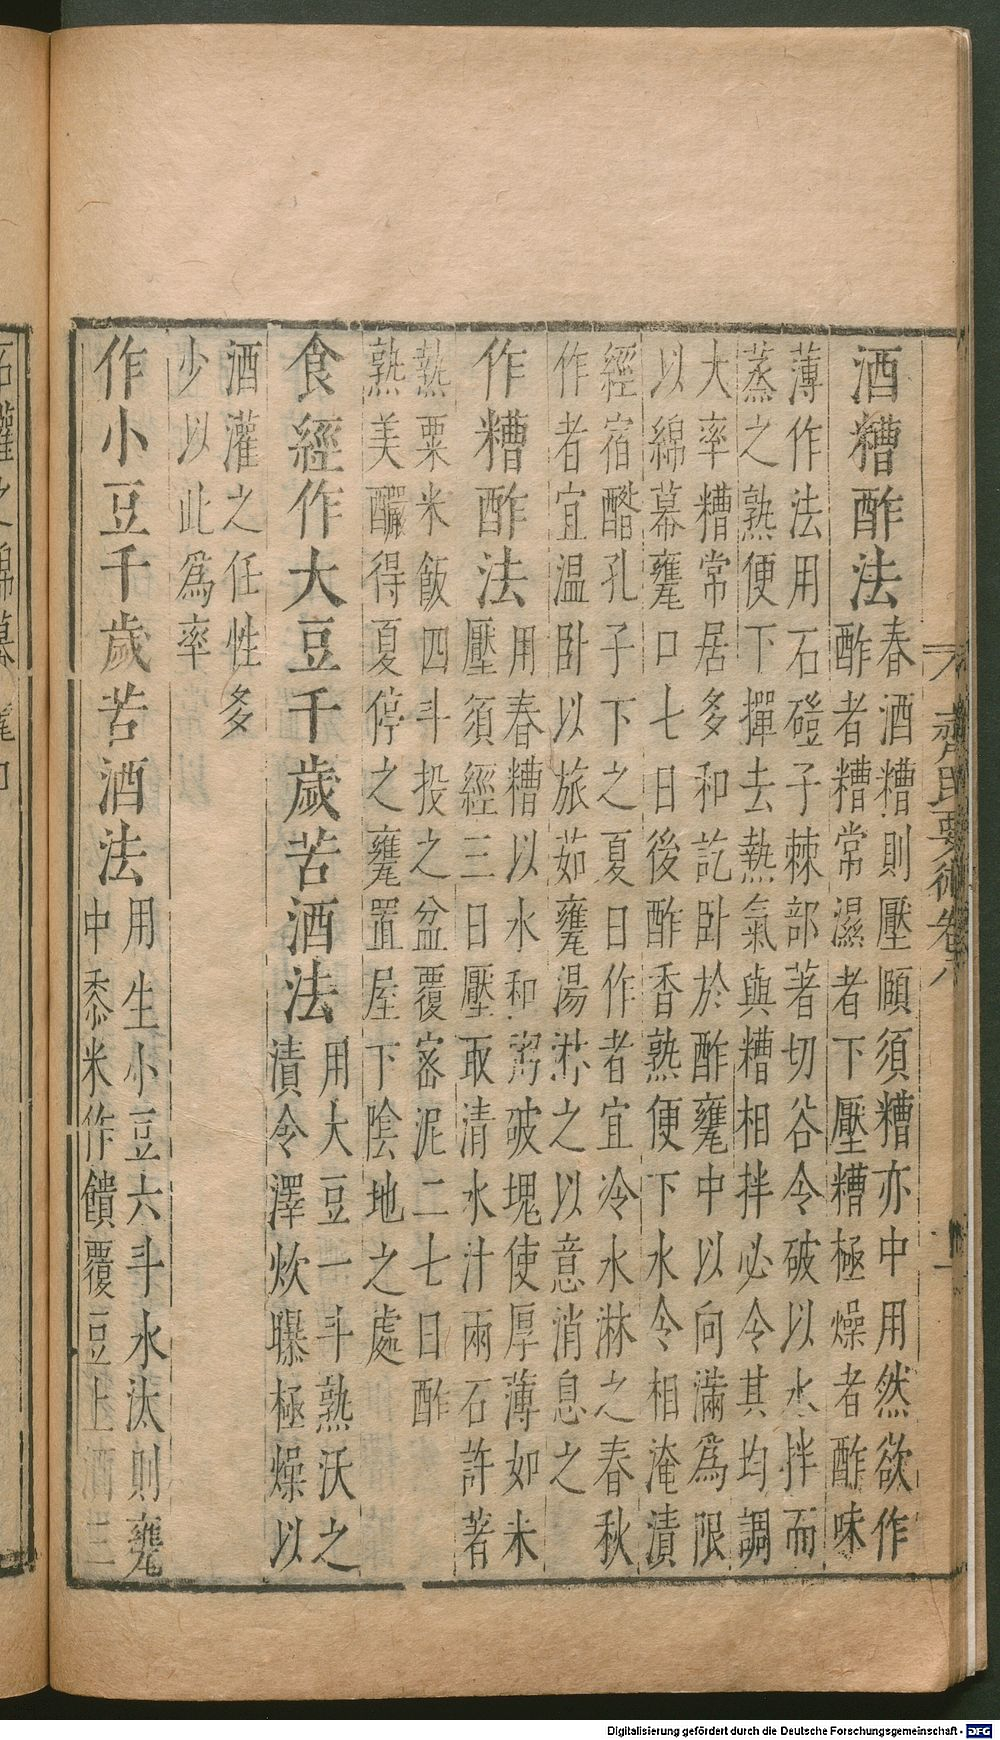 酒糟酢法
春酒糟則壓頤須糟亦中用然欲作
酢者糟常濕者下壓糟極燥者酢味
薄作法用石磑子棘部著切谷令破以水拌而
蒸之熟便下撣去熱氣與糟相拌必令其均調
大率糟常居多和訖卧於酢甕中以向滿為限
以綿幕甕口七日後酢香熟便下水令相淹漬
經宿酳孔子下之夏日作者宜冷水淋之春秋
作者宜温卧以旅茹甕湯淋之以意消息之
作糟酢法
用春糟以水和粥破塊使厚薄如未
壓須經三日壓取清水汁兩石許著
熱粟米飯四斗投之盆覆宻泥二七日酢
熟美釅得夏停之甕置屋下陰地之處
食經作大豆千歲苦酒法
用大豆一斗熟沃之
漬令澤炊曝極燥以
酒灌之任性多
少以此為率
作小豆千歲苦酒法
用生小豆六斗水汰則甕
中黍米作饙覆豆上酒三
齊民要術卷八
Digitalisierung gefördert durch die Deutsche Forschungsgemeinschaft - DFG